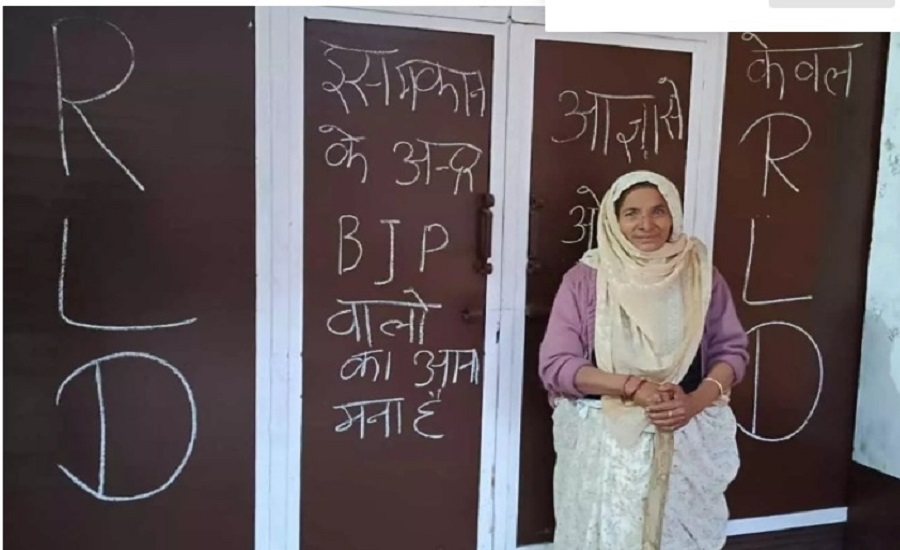 R
L
D
इस मकान
के अन्दर
BJP
वालो
का आना
मना है
आज्ञा से
केवल
R
L
D